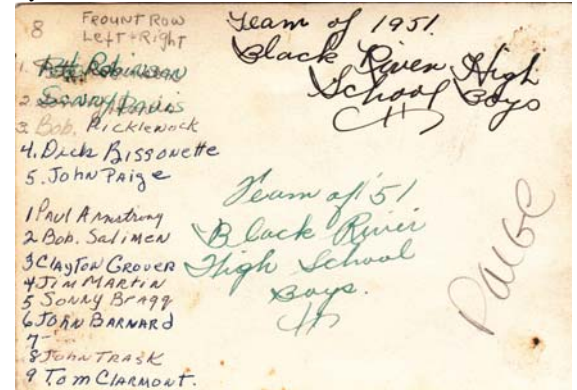 8 FROUNT ROW
Left + Right
1. Robinson
2 Sonny Davis
3. Bob. Picklewock
4. Dick Bissonette
5. John Paige
1 Paul Armstrong
2 Bob. Salimen
3 Clayton Grover
4 Jim Martin
5 Sonny Bragg
6 John Barnard
7-
8 John Trask
9 Tom Clarmont.
Team of 1951.
Black River High
School Boys
Team of '51
Black River
High School
Boys.
PAIGE